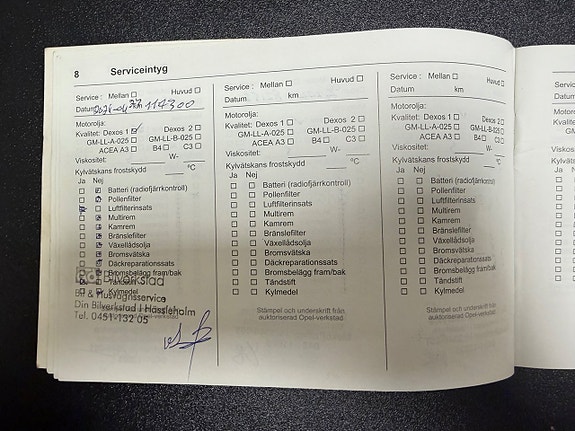 8 Serviceintyg
Service : Mellan ☐ Huvud ☐
Datum 114300
Motorolja:
Kvalitet: Dexos 1 ☑ Dexos 2 ☐
GM-LL-A-025 ☐ GM-LL-B-025 ☐
ACEA A3 ☐ B4 ☐ C3 ☐
Viskositet: W-
Kylvätskans frostskydd °C
Ja Nej
Batteri (radiofjärrkontroll)
Pollenfilter
Luftfilterinsats
Multirem
Kamrem
Bränslefilter
Växellådsolja
Bromsvätska
Däckreparationssats
Bromsbelägg fram/bak
Tändstift
Kylmedel
Bilverkstad
Bil & Husvagnsservice
Din Bilverkstad i Hässleholm
Tel. 0451-132 05
Service : Mellan ☐ Huvud ☐
Datum km
Motorolja:
Kvalitet: Dexos 1 ☐ Dexos 2 ☐
GM-LL-A-025 ☐ GM-LL-B-025 ☐
ACEA A3 ☐ B4 ☐ C3 ☐
Viskositet: W-
Kylvätskans frostskydd °C
Ja Nej
☐ ☐ Batteri (radiofjärrkontroll)
☐ ☐ Pollenfilter
☐ ☐ Luftfilterinsats
☐ ☐ Multirem
☐ ☐ Kamrem
☐ ☐ Bränslefilter
☐ ☐ Växellådsolja
☐ ☐ Bromsvätska
☐ ☐ Däckreparationssats
☐ ☐ Bromsbelägg fram/bak
☐ ☐ Tändstift
☐ ☐ Kylmedel
Stämpel och underskrift från
auktoriserad Opel-verkstad
Service : Mellan ☐ Huvud ☐
Datum km
Motorolja:
Kvalitet: Dexos 1 ☐ Dexos 2 ☐
GM-LL-A-025 ☐ GM-LL-B-025 ☐
ACEA A3 ☐ B4 ☐ C3 ☐
Viskositet: W-
Kylvätskans frostskydd °C
Ja Nej
☐ ☐ Batteri (radiofjärrkontroll)
☐ ☐ Pollenfilter
☐ ☐ Luftfilterinsats
☐ ☐ Multirem
☐ ☐ Kamrem
☐ ☐ Bränslefilter
☐ ☐ Växellådsolja
☐ ☐ Bromsvätska
☐ ☐ Däckreparationssats
☐ ☐ Bromsbelägg fram/bak
☐ ☐ Tändstift
☐ ☐ Kylmedel
Stämpel och underskrift från
auktoriserad Opel-verkstad